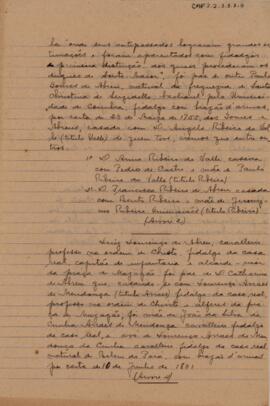 la "onde seus antepassados lograram grandes es-
timações e foram aparentados com fidalgos
de primeira distinção, dos quaes procederam os
duques de Souto Maior", foi pae de outro Paulo
Gomes de Abreu, natural da freguezia de Santa
Christina de Serzedello, bacharel pela Univer-
sidade de Coimbra, fidalgo com brazão d'armas,
por carta de 23 de Março de 1752, dos Gomes e
Abreus, casado com D. Angela Ribeiro do Val-
le (titulo Valle) de quem teve, varios que entre ou-
tros.
1º D. Anna Ribeiro do Valle, casada
com Pedro de Castro e mãe de Paulo
Ribeiro do Valle (titulo Ribeiro)
2º D. Francisca Ribeiro de Abreu casada
com Bento Ribeiro e mãe de Jerony-
mo Ribeiro Guimarães (titulo Ribeiro)
(Arvore 2)
Luiz Lourenço de Abreu, cavalleiro
professo na ordem de Christo, fidalgo da casa
real, capitão de infantaria e almox. mor
da praça de Mazagão foi pae de D. Catharina
de Abreu que, casando-se com Lourenço Arraes
de Mendonça (titulo Arraes) fidalgo da casa real,
professo na ordem de Christo e alferes da pra-
ça de Mazagão, foi mãe de João da Silva da
Cunha Arraes de Mendonça cavalleiro fidalgo
da casa real, e avó de Lourenço Arraes de Men-
donça da Cunha cavalleiro fidalgo da casa real
natural de Belem do Pará, com brazão d'armas
por carta de 10 de Junho de 1801